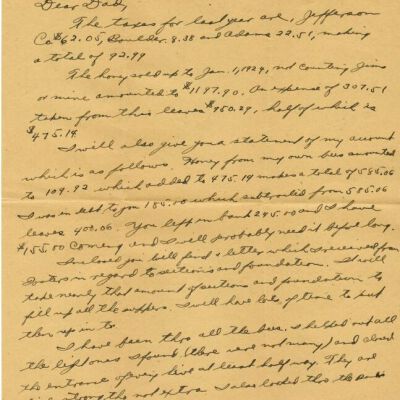 Dear Dad,
The taxes for last year are, Jefferson
Co $62.05, Boulder 8.38 and Adams 22.51, making
a total of 92.99
The honey sold up to Jan. 1, 1924, not counting Jims
or mine amounted to $1197.90. An expense of 307.51
taken from this leaves $950.29, half of which is
$475.14
I will also give you a statement of my account
which is as follows. Honey from my own bees amounted
to 109.92 which added to 475.14 makes a total of 585.06
I was in debt to you 185.00 which subtracted from 585.06
leaves 400.06. You left in bank 245.00 and I have
$155.00 Coming and I will probably need it before long.
Inclosed you will find a letter which I received from
Fosters in regard to sections and foundation. I will
take nearly that amount of sections and foundation to
fill up all the supers. I will have lots of time to put
them up in to
I have been thro all the bees. I helped out all
the light ones I found (there were not many) and closed
the entrance of every hive at least half way. They are
strong tho not extra. I also looked thro the